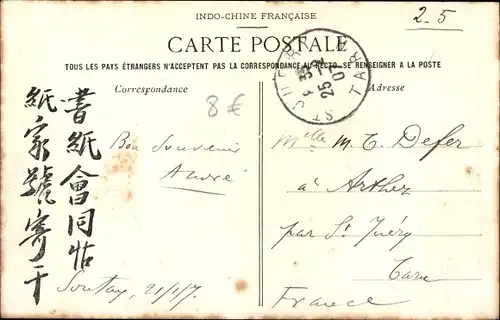 INDO-CHINE FRANÇAISE
2-5
CARTE POSTALE
TOUS LES PAYS ÉTRANGERS N'ACCEPTENT PAS LA CORRESPONDANCE AU RECTO SE RENSEIGNER A LA POSTE
Correspondance
8€
Adresse
ST JUERY
TARN
25-2
07
書紙會同
紙家號寄干
Bon Souvenir
André
Sontay, 21/1/7.
Melle M. T. Defer
à Arthez
par St Juéry
Tarn
France